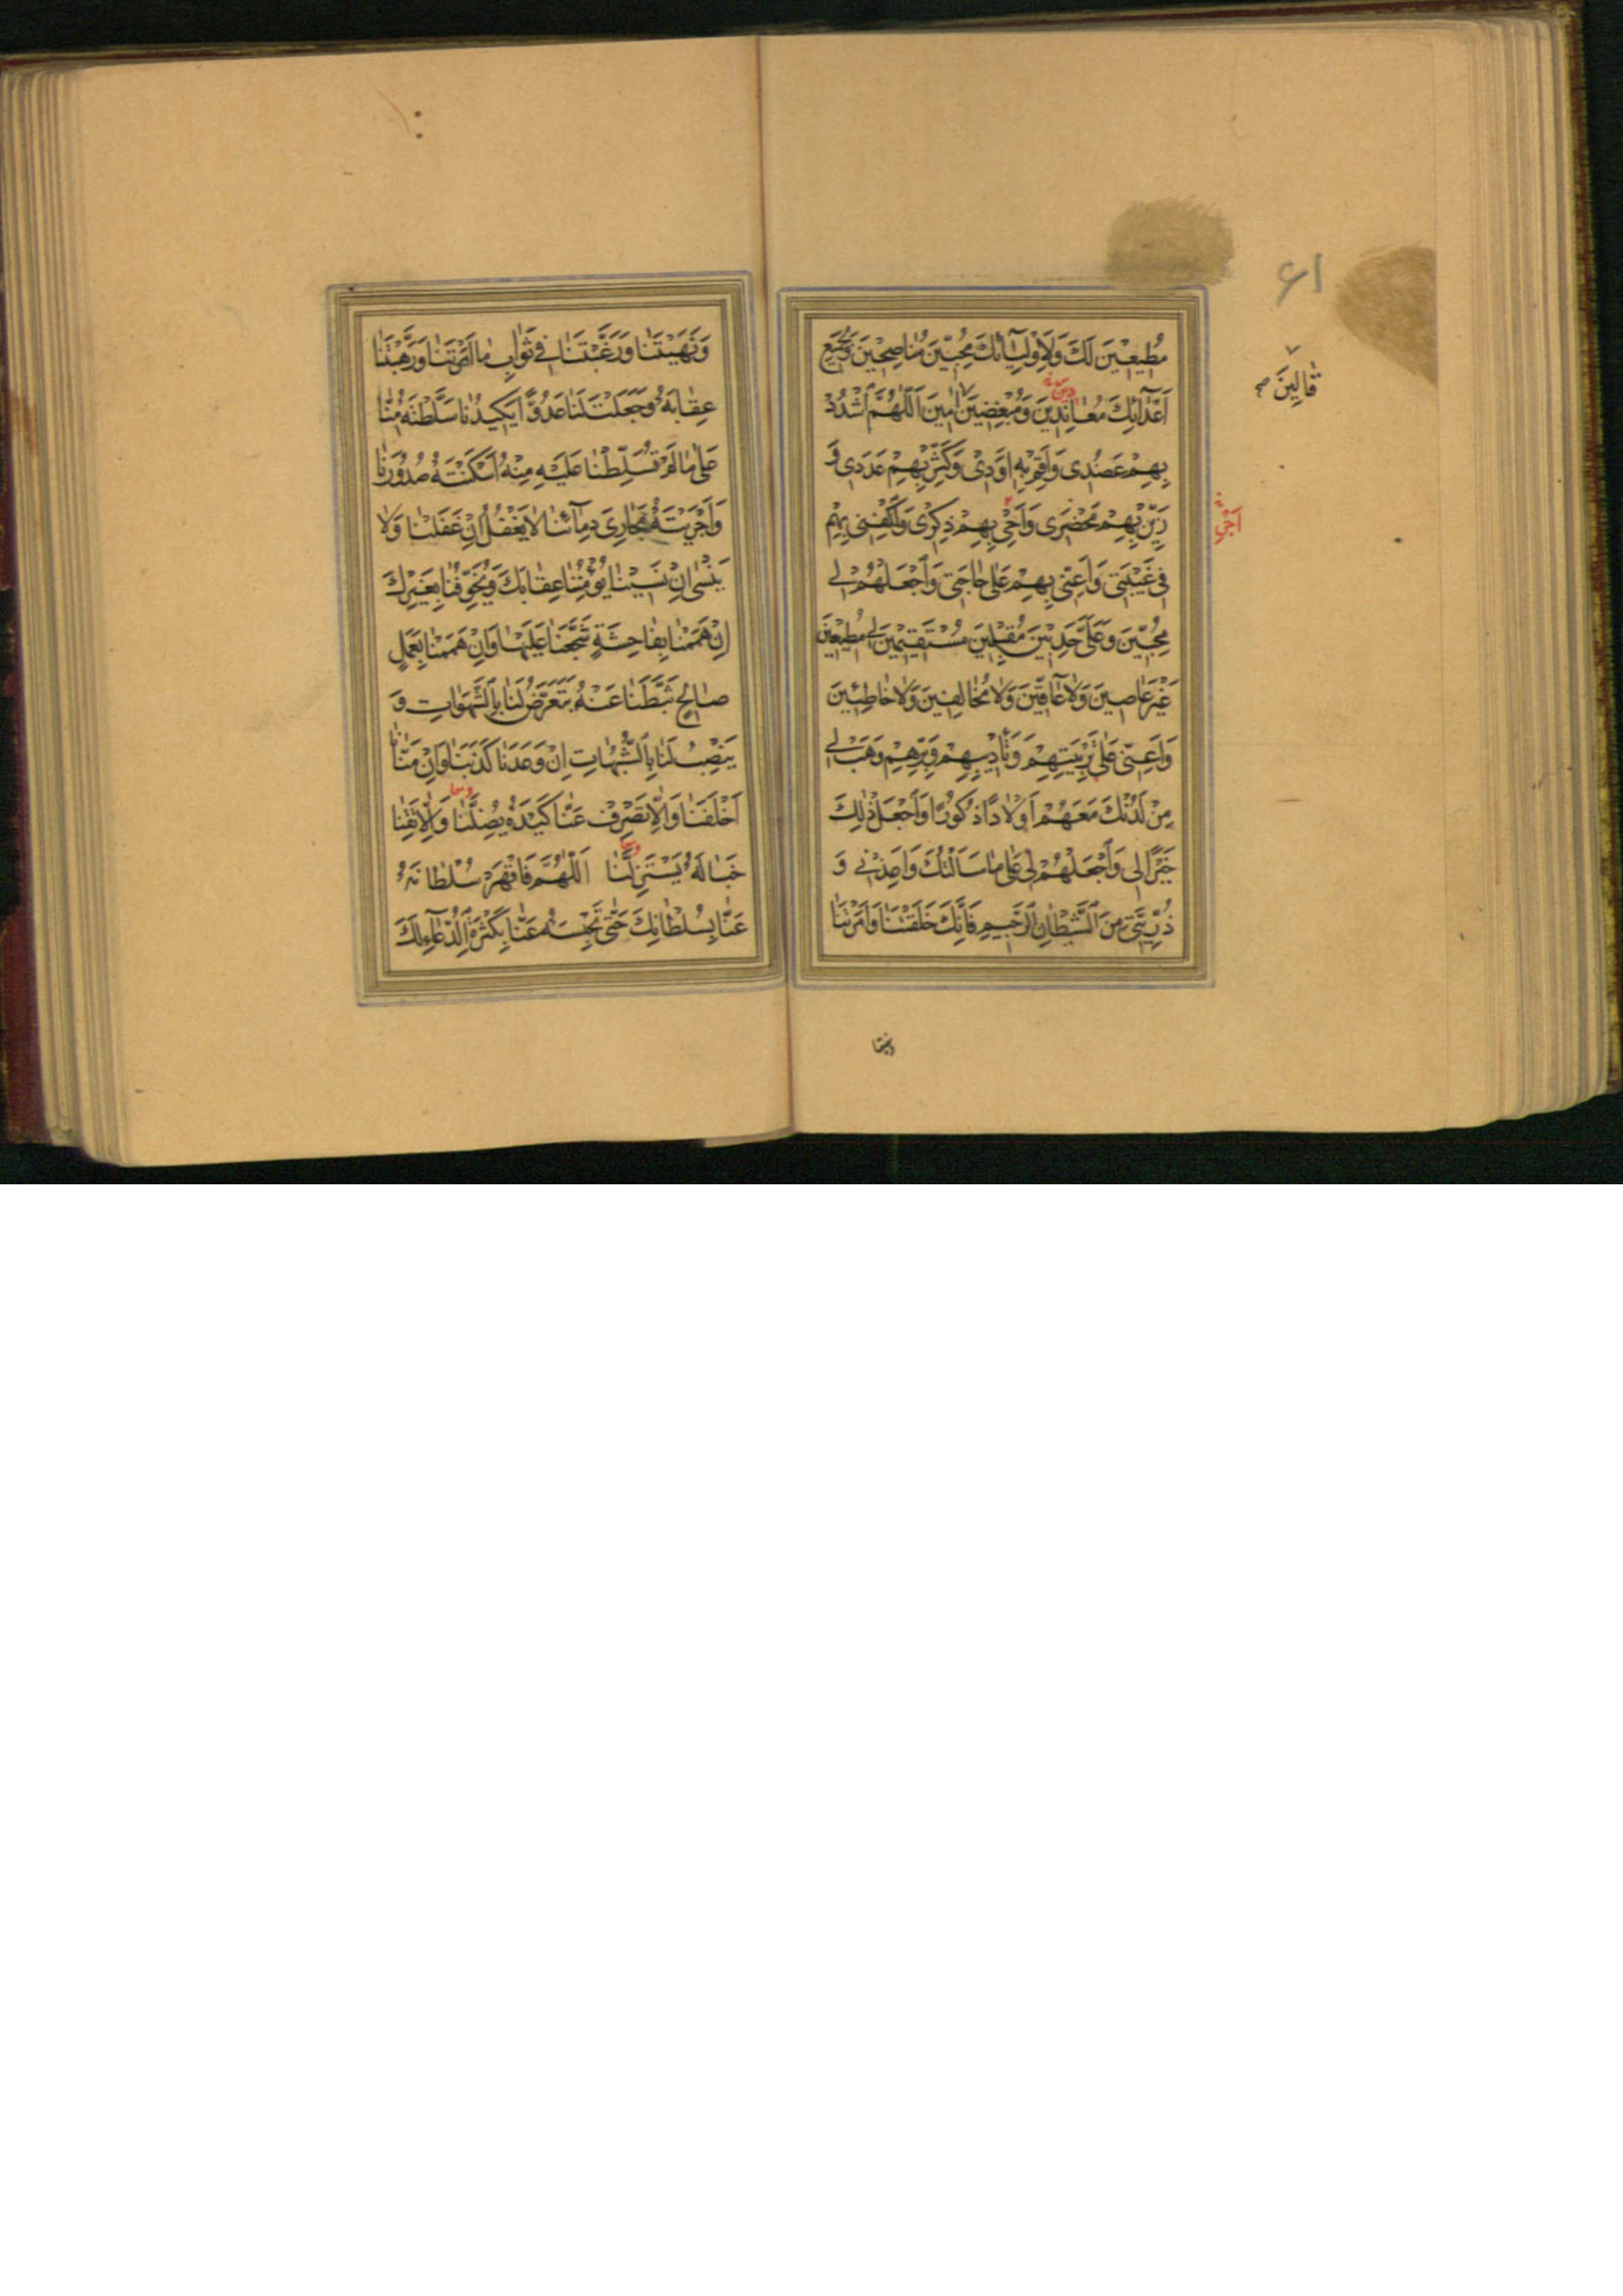 مُطيعينَ لَكَ وَلِاَوْلِيآئِكَ مُحِبّينَ مُناصِحينَ وَلِجَميعِ
اَعْدآئِكَ مُعانِدينَ وَمُبْغِضينَ امينَ اَللّهُمَّ اشْدُدْ
بِهِمْ عَضُدى وَاَقِمْ بِهِمْ اَوَدى وَكَثِّرْ بِهِمْ عَدَدى وَ
زَيِّنْ بِهِمْ مَحْضَرى وَاَحْىِ بِهِمْ ذِكْرى وَاكْفِنى بِهِمْ
فى غَيْبَتى وَاَعِنّى بِهِمْ عَلى حاجَتى وَاجْعَلْهُمْ لى
مُحِبّينَ وَعَلَىَّ حَدِبينَ مُقْبِلينَ مُسْتَقيمينَ لى مُطيعينَ
غَيْرَ عاصينَ وَلا عآقّينَ وَلا مُخالِفينَ وَلا خاطِئينَ
وَاَعِنّى عَلى تَرْبِيَتِهِمْ وَتَأْديبِهِمْ وَبِرِّهِمْ وَهَبْ لى
مِنْ لَدُنْكَ مَعَهُمْ اَوْلادًا ذُكُورًا وَاجْعَلْ ذلِكَ
خَيْرًا لى وَاجْعَلْهُمْ لى عَلى ما سَاَلْتُكَ وَاَعِذْنى وَ
ذُرِّيَّتى مِنَ الشَّيْطانِ الرَّجيمِ فَاِنَّكَ خَلَقْتَنا وَاَمَرْتَنا
قالينَ صح
اَجْرِ
٦١
وَنَهَيْتَنا وَرَغَّبْتَنا فى ثَوابِ ما اَمَرْتَنا وَرَهَّبْتَنا
عِقابَهُ وَجَعَلْتَ لَنا عَدُوًّا يَكيدُنا سَلَّطْتَهُ مِنّا
عَلى ما لَمْ تُسَلِّطْنا عَلَيْهِ مِنْهُ اَسْكَنْتَهُ صُدُورَنا
وَاَجْرَيْتَهُ مَجارِىَ دِمآئِنا لا يَغْفُلُ اِنْ غَفَلْنا وَلا
يَنْسى اِنْ نَسينا يُؤْمِنُنا عِقابَكَ وَيُخَوِّفُنا بِغَيْرِكَ
اِنْ هَمَمْنا بِفاحِشَةٍ شَجَّعَنا عَلَيْها وَاِنْ هَمَمْنا بِعَمَلٍ
صالِحٍ ثَبَّطَنا عَنْهُ يَتَعَرَّضُ لَنا بِالشَّهَواتِ وَ
يَنْصِبُ لَنا بِالشُّبُهاتِ اِنْ وَعَدَنا كَذَبَنا وَاِنْ مَنّانا
اَخْلَفَنا وَاِلّا تَصْرِفْ عَنّا كَيْدَهُ يُضِلَّنا وَاِلّا تَقِنا
خَبالَهُ يَسْتَزِلَّنا اَللّهُمَّ فَاقْهَرْ سُلْطانَهُ
عَنّا بِسُلْطانِكَ حَتّى تَحْبِسَهُ عَنّا بِكَثْرَةِ الدُّعآءِ لَكَ